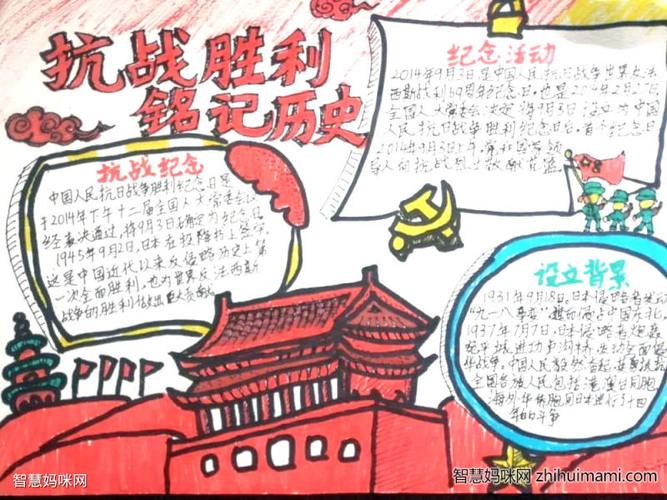 抗战胜利
铭记历史
纪念活动
2014年9月3日是中国人民抗日战争暨世界反法
西斯战利69周年纪念日,也是2014年2月27日
全国人大常委会决定将9月3日设立为中国
人民抗日战争胜利纪念日后,首个纪念日
2014年9月3日上午,党和国家领
导人向抗战烈士敬献花篮
抗战纪念
中国人民抗日战争胜利纪念日是
于2014年下午十二届全国人大常委会
经表决通过,将9月3日确定为纪念日
1945年9月2日,日本在投降书上签字
这是中国近代以来反侵略历史上第
一次全面胜利,也为世界反法西斯
战争的胜利做出巨大贡献
设立背景
1931年9月18日,日本侵略者发动
"九一八事变"
1937年7月7日,日本侵略者炮轰
宛平城进攻卢沟桥,发动全面侵
华战争。中国人民毅然奋起
全国各族人民包括港澳台同胞
海外华侨同胞同日本进行了十四
年的斗争
智慧妈咪网
智慧妈咪网 zhihuimami.com